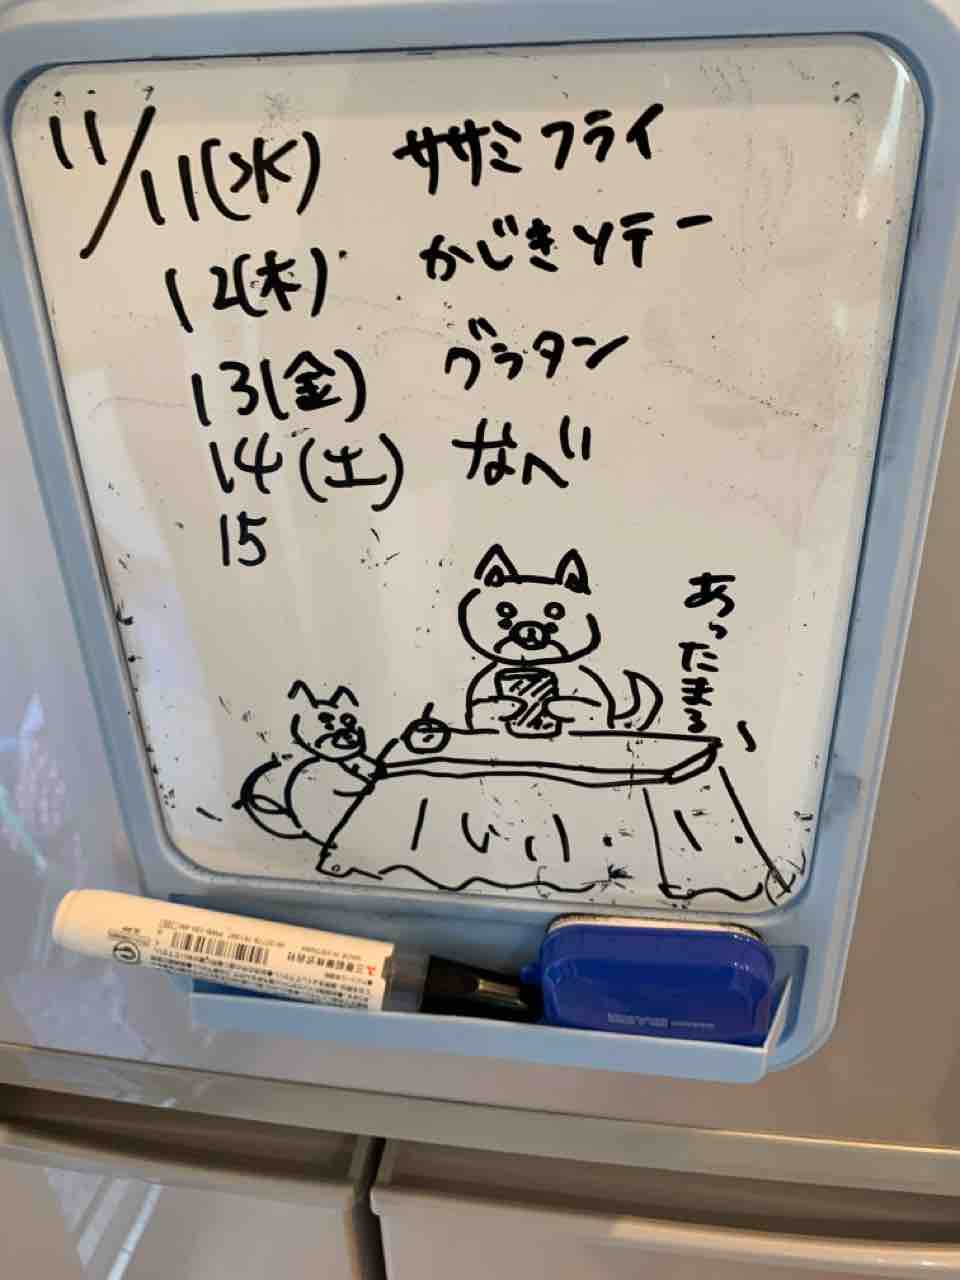 11/11(水) ササミフライ
12(木) かじきソテー
13(金) グラタン
14(土) なべ
15
あったまる
三菱鉛筆株式会社